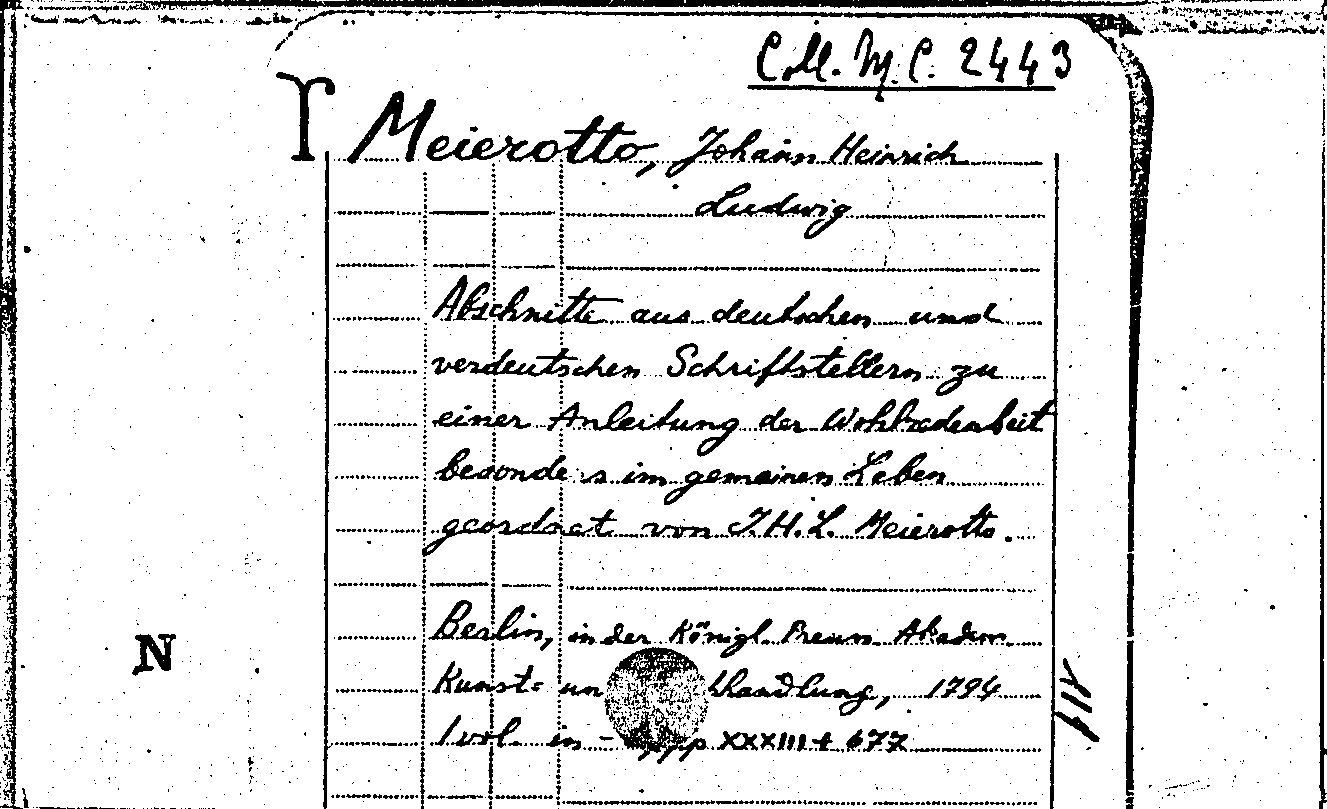 Coll. M. C. 2443
Meierotto, Johann Heinrich
Ludwig
Abschnitte aus deutschen und
verdeutschen Schriftstellern zu
einer Anleitung der Wohlredenheit
besonde s im gemeinen Leben
geordnet von J.H.L. Meierotto.
Berlin, in der Königl. Preuss. Akadem.
N
Kunst= un hhandlung, 1794
1 vol. in - pp XXXIII + 677